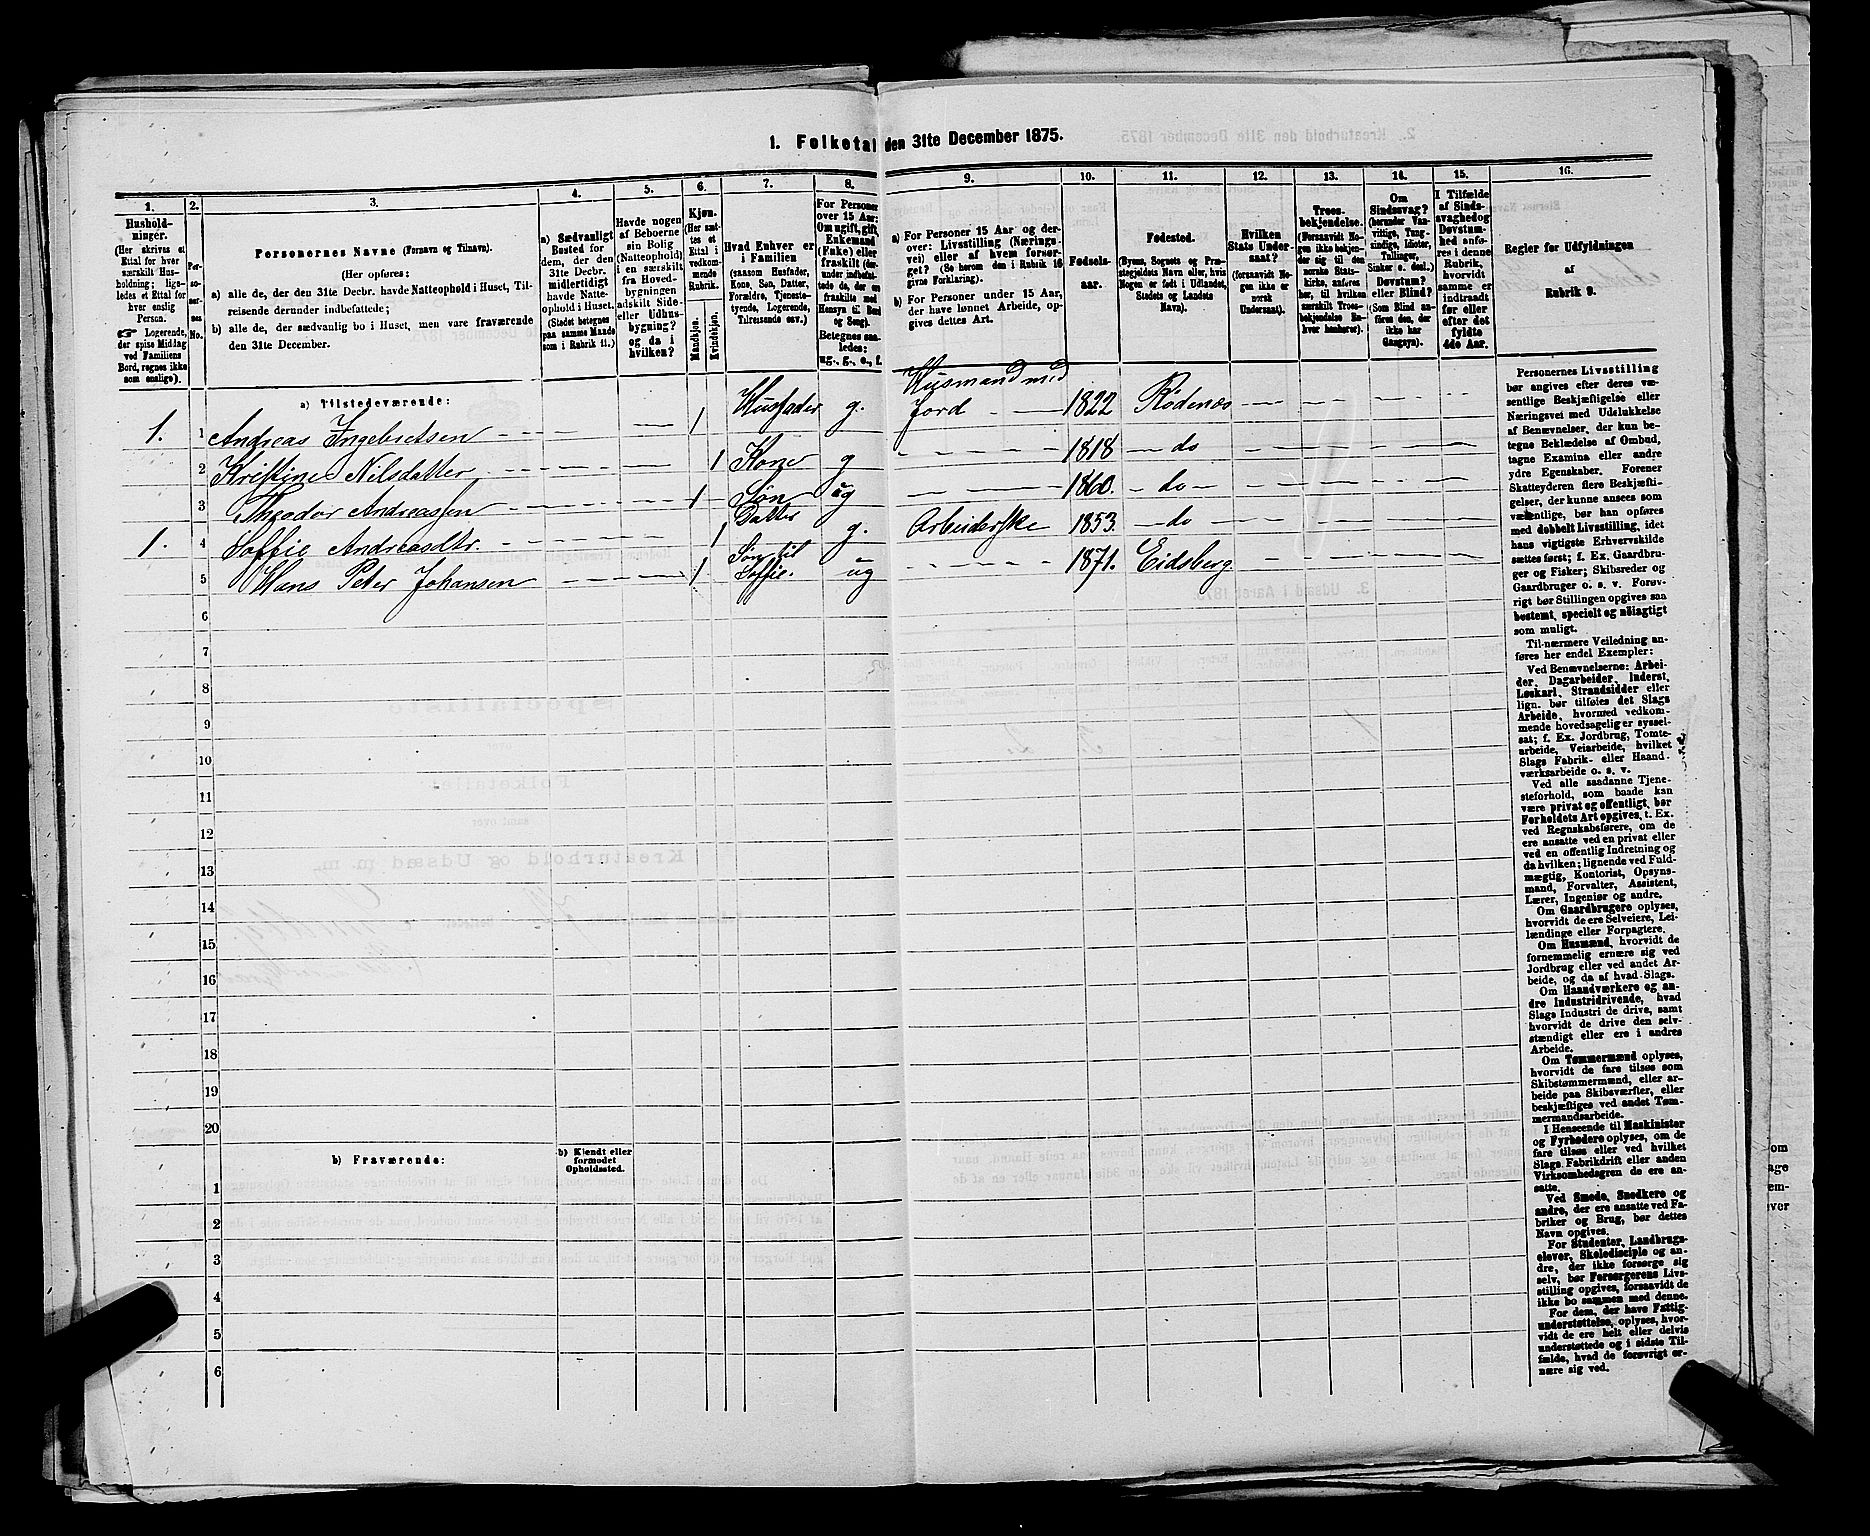 1. Folketal den 31te December 1875.
1. 2. 3. 4. 5. 6. 7. 8. 9. 10. 11. 12. 13. 14. 15. 16.
Hushold-
ninger.
(Her skrives et
Ettal for hver
særskilt Hus-
holdning; lige-
ledes et Ettal for
hver enslig
Person.
☞ Logerende,
der spise Middag
ved Familiens
Bord, regnes ikke
som enslige).
Per-
so-
ner-
nes
No.
Personernes Navne (Fornavn og Tilnavn).
(Her opføres:
a) alle de, der den 31te Decbr. havde Natteophold i Huset, Til-
reisende derunder indbefattede;
b) alle de, der sædvanlig bo i Huset, men vare fraværende
den 31te December.
a) Sædvanligt
Bosted for
dem, der den
31te Decbr.
midlertidigt
havde Natte-
ophold i Huset.
(Stedet betegnes
paa samme Maade
som i Rubrik 11.)
Havde nogen
af Beboerne
sin Bolig
(Natteophold)
i en særskilt
fra Hoved-
bygningen
adskilt Side-
eller Udhus-
bygning?
og da i
hvilken?
Kjøn.
(Her sæt-
tes et
Ettal i
vedkom-
mende
Rubrik.
Mandkjøn.
Kvindekjøn.
Hvad Enhver er
i Familien
(saasom Husfader,
Kone, Søn, Datter,
Forældre, Tjeneste-
tyende, Logerende,
Tilreisende osv.)
For Personer
over 15 Aar:
Om ugift, gift,
Enkemand
(Enke) eller
fraskilt (der-
under indbefat-
tede de, der ere
fraskilte med
Hensyn til Bord
og Seng).
Betegnes saa-
ledes:
ug., g., e., f.
a) For Personer 15 Aar og der-
over: Livsstilling (Nærings-
vei) eller af hvem forsør-
get? (Se herom den i Rubrik 16
givne Forklaring).
b) For Personer under 15 Aar,
der have lønnet Arbeide, op-
gives dettes Art.
Fødsels-
aar.
Fødested.
(Byens, Sognets og Præ-
stegjeldets Navn eller, hvis
Nogen er født i Udlandet,
Stedets og Landets
Navn).
Hvilken
Stats Under-
saat?
(forsaavidt No-
gen ikke er
norsk
Undersaat).
Troes-
bekjendelse.
(Forsaavidt No-
gen ikke bekjen-
der sig til den
norske Stats-
kirke, anføres
her, til hvilken
særskilt Troes-
bekjendelse En-
hver henhører).
Om
Sindssvag?
(herunder Van-
vittige, Tung-
sindige, Idioter,
Tullinger,
Sinker o. desl.)
Døvstum?
eller Blind?
(Som Blind an-
føres den, der
ikke har
Gangsyn).
I Tilfælde
af Sinds-
svaghed og
Døvstum-
hed anfø-
res i denne
Rubrik,
hvorvidt
samme er
indtraadt
før eller
efter det
fyldte
4de Aar.
Regler for Udfyldningen
af
Rubrik 9.
a) Tilstedeværende:
1. 1 Andreas Ingebretsen 1 Husfader g. Husmand med Jord 1822 Rødenæs
2 Kristine Nilsdatter 1 Kone g 1818 do
3 Theodor Andreassen 1 Søn ug 1860. do
1. 4 Soffie Andreasdtr. 1 Datter g. Arbeiderske 1853. do
5 Hans Peter Johansen 1 Søn til Soffie. ug 1871. Eidsberg
6
7
8
9
10
11
12
13
14
15
16
17
18
19
20
b) Fraværende:
b) Kjendt eller
formodet
Opholdssted.
1
2
3
4
5
6
Personernes Livsstilling
bør angives efter deres væ-
sentlige Beskjæftigelse eller
Næringsvei med Udelukkelse
af Benævnelser, der kun be-
tegne Beklædelse af Ombud,
tagne Examina eller andre
ydre Egenskaber. Forener
Skatteyderen flere Beskjæfti-
gelser, der kunne ansees som
væsentlige, bør han opføres
med dobbelt Livsstilling, idet
hans vigtigste Erhvervskilde
sættes først; f. Ex. Gaardbru-
ger og Fisker; Skibsreder og
Gaardbruger o. s. v. Forøv-
rigt bør Stillingen opgives saa
bestemt, specielt og nøiagtigt
som muligt.
Til nærmere Veiledning an-
føres her endel Exempler:
Ved Benævnelserne: Arbei-
der, Dagarbeider, Inderst,
Løskarl, Strandsidder eller
lign. bør tilføies det Slags
Arbeide, hvormed vedkom-
mende hovedsagelig er syssel-
sat; f. Ex. Jordbrug, Tomte-
arbeide, Veiarbeide, hvilket
Slags Fabrik- eller Haand-
værksarbeide o. s. v.
Ved alle saadanne Tjene-
steforhold, som baade kan
være privat og offentligt, bør
Forholdets Art opgives, t. Ex.
ved Regnskabsførere, om de
ere ansatte ved en privat eller
ved en offentlig Indretning og
da hvilken; lignende ved Fuld-
mægtig, Kontorist, Opsyns-
mand, Forvalter, Assistent,
Lærer, Ingeniør og andre.
Om Gaardbrugere oplyses,
hvorvidt de ere Selveiere, Lei-
lændinge eller Forpagtere.
Om Husmænd, hvorvidt de
fornemmelig ernære sig ved
Jordbrug eller ved andet Ar-
beide, og da af hvad Slags.
Om Haandværkere og an-
dre Industridrivende, hvad
Slags Industri de drive, samt
hvorvidt de drive den selv-
stændigt eller ere i andres
Arbeide.
Om Tømmermænd oplyses,
hvorvidt de fare tilsøs som
Skibstømmermænd, eller ar-
beide paa Skibsværfter, eller
beskjæftiges ved andet Tøm-
mermandsarbeide.
I Henseende til Maskinister
og Fyrbødere oplyses, om de
fare tilsøs eller ved hvilket
Slags Fabrikdrift eller anden
Virksomhedsgren de ere an-
satte.
Ved Smede, Snedkere og
andre, der ere ansatte ved Fa-
briker og Brug, bør dettes
Navn opgives.
For Studenter, Landbrugs-
elever, Skoledisciple og an-
dre, der ikke forsørge sig
selv, bør Forsørgerens Livs-
stilling opgives, forsaavidt de
ikke bo sammen med denne.
For dem, der have Fattig-
understøttelse, oplyses, hvor-
vidt de ere helt eller delvis
understøttede og i sidste Til-
fælde, hvad de forøvrigt er-
nære sig ved.